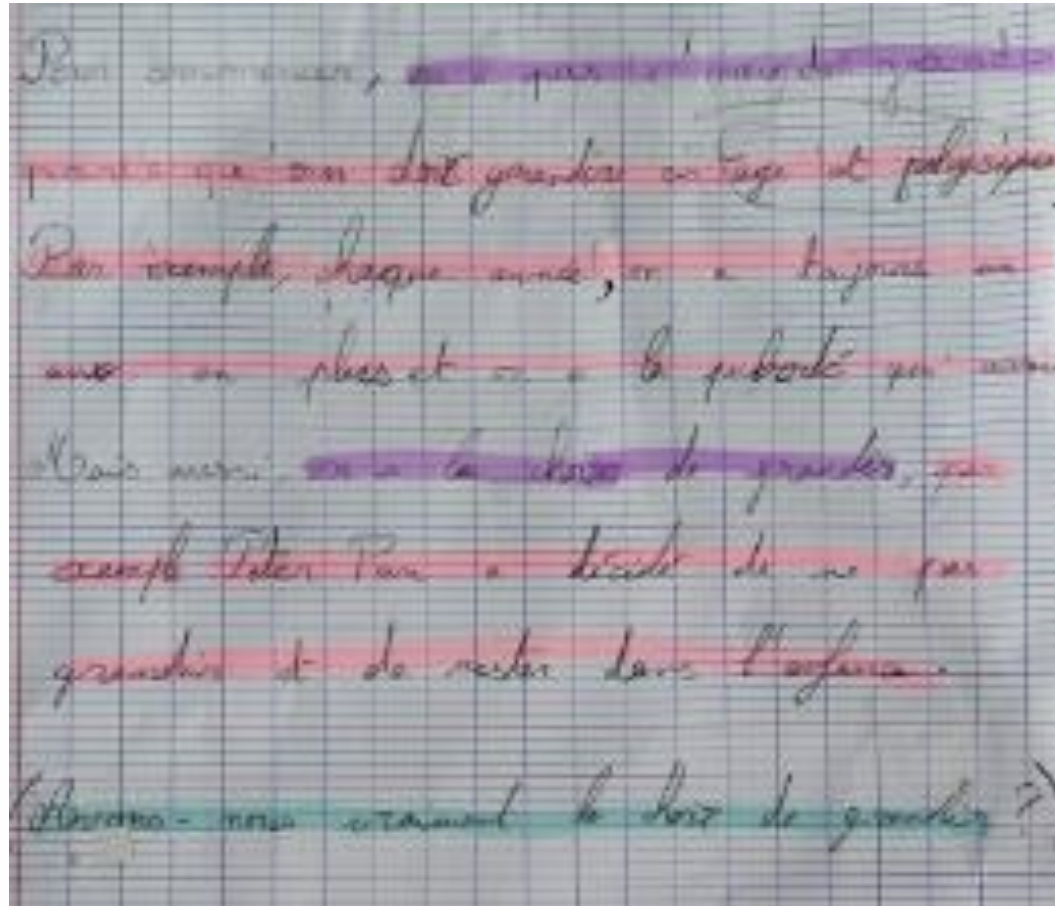 Pour commencer, on a pas le
parce qu'on doit grandire en l'age et
Par exemple, chaque année, on a toujours un
en plus et on a la puberté qui
Mais aussi on a le choix de grandir, par
exemple Peter Pan a décidé de ne pas
grandir et de rester dans l'enfance.
(Avons-nous vraiment le choix de grandir ?)